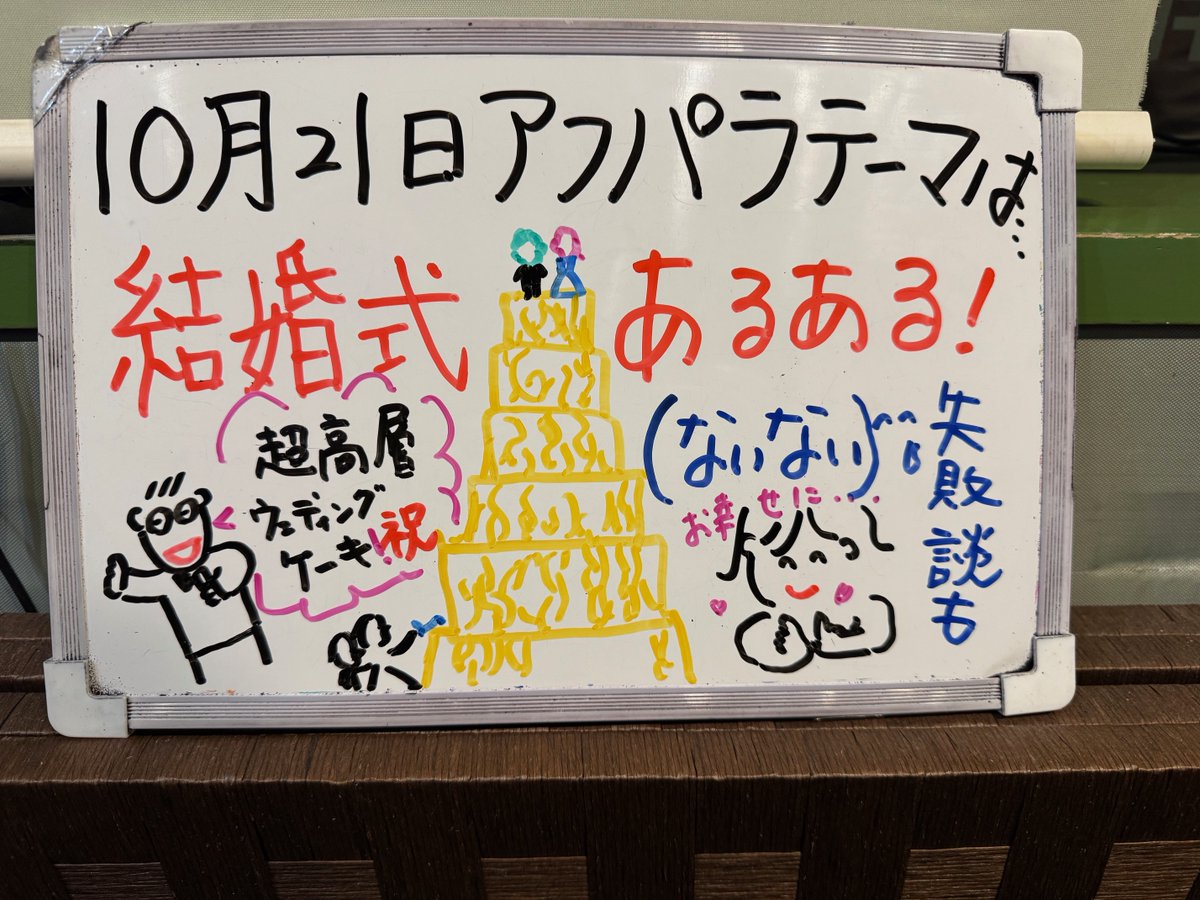 10月21日アフパラテーマは…
結婚式 あるある!
(ないない)
失敗談も
超高層
ウェディング
ケーキ!祝
お幸せに…